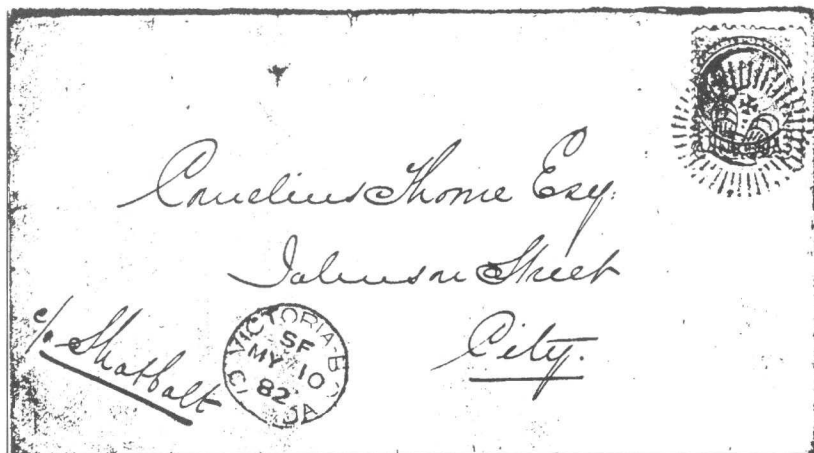 Cornelius Thorne Esq.
Johnson Street
City.
c/o Shotbolt
VICTORIA B
SF
MY 10
82